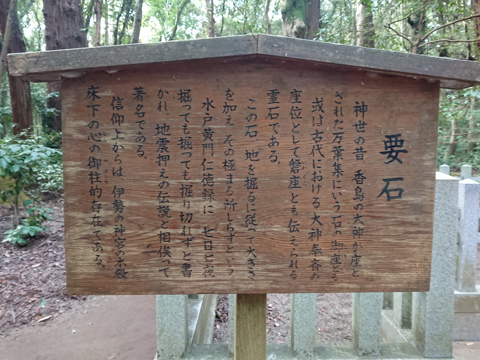 要石
神世の昔 香島の大神が座と
された万葉集にいう石の御座とも
或は古代における大神奉斎の
座位として磐座とも伝えられる
霊石である。
この石 地を掘るに従って大きさ
を加え その極まる所しらずという
水戸黄門仁徳録に 七日七夜
掘っても掘っても掘り切れずと書
かれ 地震押えの伝説と相俟って
著名である。
信仰上からは 伊勢の神宮の
床下の心の御柱的存在である。